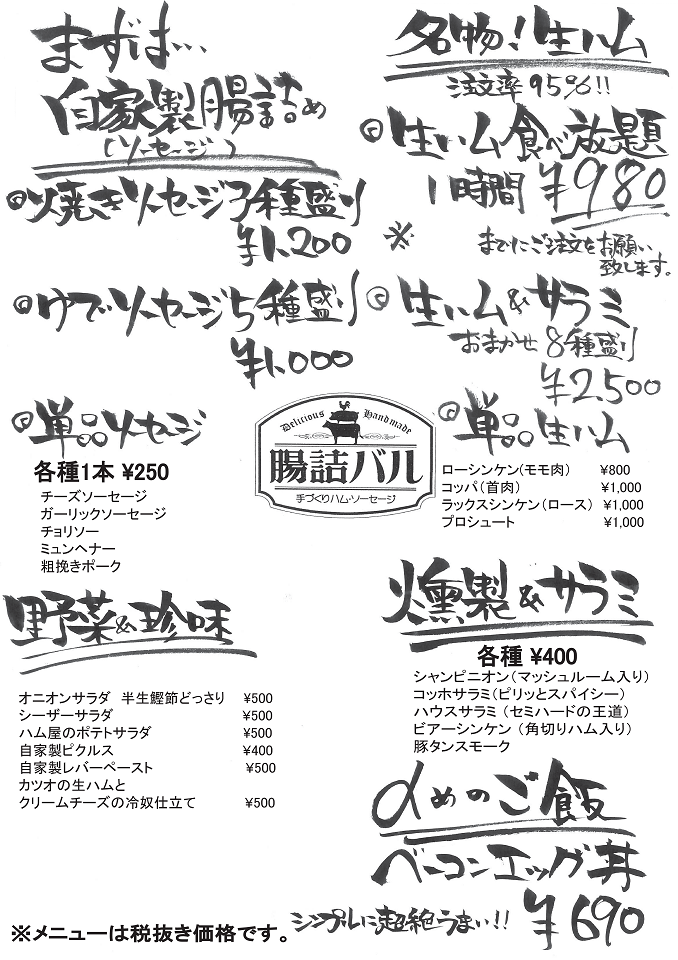 まずは…
自家製腸詰め
(ソーセージ)
焼きソーセージ3種盛り
¥1,200
ゆでソーセージ5種盛り
¥1,000
単品ソーセージ
各種1本 ¥250
チーズソーセージ
ガーリックソーセージ
チョリソー
ミュンヘナー
粗挽きポーク
野菜&珍味
オニオンサラダ 半生鰹節どっさり ¥500
シーザーサラダ ¥500
ハム屋のポテトサラダ ¥500
自家製ピクルス ¥400
自家製レバーペースト ¥500
カツオの生ハムと
クリームチーズの冷奴仕立て ¥500
※メニューは税抜き価格です。
Delicious Handmade
腸詰バル
手づくりハム・ソーセージ
名物!生ハム
注文率95%!!
生ハム食べ放題
1時間 ¥980
※ までにご注文をお願い
致します。
生ハム&サラミ
おまかせ 8種盛り
¥2,500
単品生ハム
ローシンケン(モモ肉) ¥800
コッパ(首肉) ¥1,000
ラックスシンケン(ロース) ¥1,000
プロシュート ¥1,000
燻製&サラミ
各種 ¥400
シャンピニオン(マッシュルーム入り)
コッホサラミ(ピリッとスパイシー)
ハウスサラミ(セミハードの王道)
ビアーシンケン(角切りハム入り)
豚タンスモーク
〆めのご飯
ベーコンエッグ丼
シンプルに超絶うまい!! ¥690